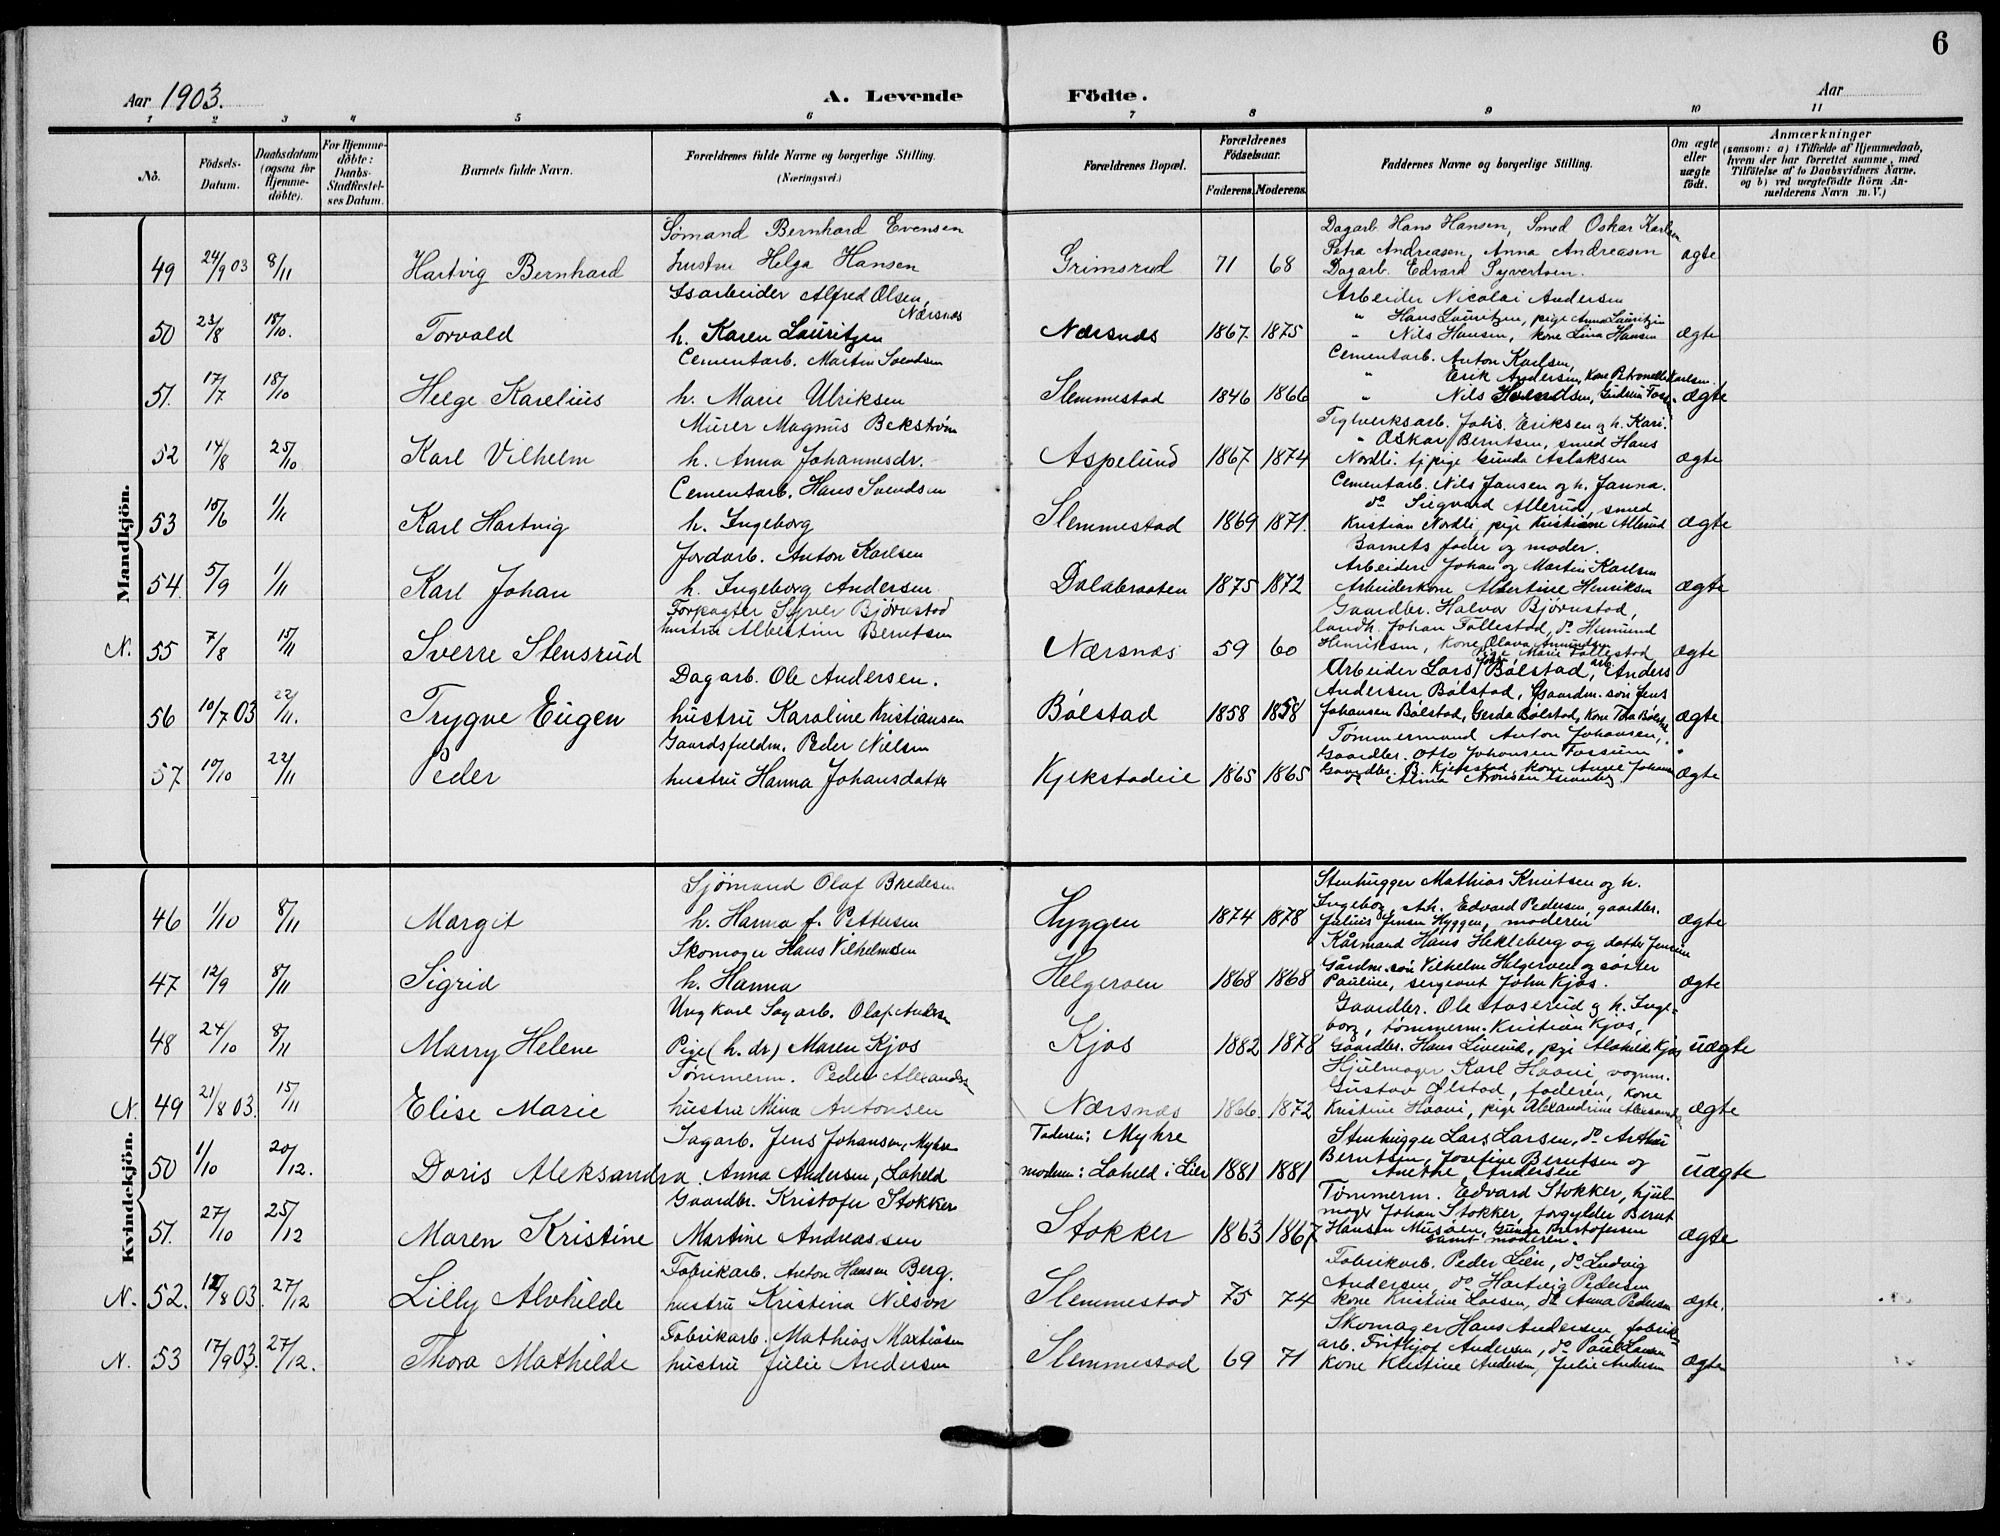 6
Aar 1903. A. Levende Födte. Aar
1 2 3 4 5 6 7 8 9 10 11
No. Födsels-Datum. Daabsdatum (ogsaa for Hjemme-döbte). For Hjemme-döbte: Daabs-Stadfæstel-ses Datum. Barnets fulde Navn. Forældrenes fulde Navne og borgerlige Stilling. (Næringsvei.) Forældrenes Bopæl. Forældrenes Födselsaar. Faderens. Moderens. Faddernes Navne og borgerlige Stilling. Om ægte eller uægte födt. Anmærkninger (saasom: a) i Tilfælde af Hjemmedaab, hvem der har forrettet samme, med Tilföielse af to Daabsvidners Navne, og b) ved uægtefödte Börn An-melderens Navn m. V.)
Mandkjön.
Sømand Bernhard Evensen Dagarb. Hans Hansen, Smed Oskar Karlsen
49 24/9 03 8/11 Hartvig Bernhard hustru Helga Hansen Grimsrud 71 68 Petra Andreasen, Anna Andreasen ægte
Dagarb. Edvard Syvertsen.
Isarbeider Alfred Olsen, Nærsnæs Arbeider Nicolai Andersen
" Hans Lauritzen, pige Anna Lauritzen
50 23/8 18/10. Torvald h. Karen Lauritzen Nærsnæs 1867 1875 " Nils Hansen, kone Lina Hansen ægte
Cementarb. Martin Svendsen Cementarb. Anton Karlsen,
" Erik Andersen, Kone Petronelle Karlsen.
51. 17/7 18/10 Helge Karelius h. Marie Ulriksen Slemmestad 1846 1866 " Nils Svendsen, Gudrun ægte
Murer Magnus Bekstrøm Teglverksarb. Johs. Eriksen og h. Kari.
" Oskar Berntsen, smed Hans
52 14/8 25/10 Karl Vilhelm h. Anna Johannesdr. Aspelund 1867 1874 Nordli. tj.pige Gunda Aslaksen ægte
Cementarb. Hans Svendsen Cementarb. Nils Jansen og h. Janna.
do Sigvard Allerud, smed
53 15/6 1/11 Karl Hartvig h. Ingeborg Slemmestad 1869 1871. Kristian Nordli, pige Kristiane Allerud ægte
Jordarb. Anton Karlsen Barnets fader og moder.
Arbeidere Johan og Martin Karlsen
54. 5/9 1/11 Karl Johan h. Ingeborg Andersen Dalabraaten 1875 1872 Arbeiderkone Albertine Henriksen ægte
Forpagter Syver Bjørnstad Gaardbr. Halvor Bjørnstad,
hustru Albertine Berntsen landh. Johan Follestad, do Humund
N. 55 7/8 15/11 Sverre Stensrud Nærsnæs 59 60 Henriksen, kone Olava pige Marie Follestad ægte
Dagarb. Ole Andersen. Arbeider Lars Bölstad, arb. Anders
Andersen Bölstad, Gaardm. sön Jens
56 10/7 03 22/11. Trygve Eugen hustru Karoline Kristiansen Bölstad 1858 1858 Johansen Bölstad, Gerda Bölstad, kone Bölstad ægte
Gaardsfuldm. Peder Nielsen Tömmermand Anton Johansen,
Gaardbr. Otto Johansen Fossum
57 10/10 22/11 Peder hustru Hanna Johansdatter Kjekstadeie 1865 1865 Gaardbr. B. Kjekstad, kone Anne Johansen ægte
Alma Aronsen
Kvindekjön.
Sjömand Olaf Bredesen Stenhugger Mathias Knutsen og h.
Ingeborg, Edvard Pedersen, gaardbr.
46 1/10 8/11 Margit h. Hanna f. Pettersen Hyggen 1874 1878 Julius Jensen Hyggen, moderen ægte
Skomager Hans Vilhelmsen Kårmand Hans Hekleberg og datter
Gårdm. sön Vilhelm Helgeroen og søster
47 12/9 8/11 Sigrid h. Hanna Helgeroen 1868 1868 Pauline, sergeant John Kjos. ægte
Ungkarl Sagarb. Olaf Andersen Gaardbr. Ole Haserud og h. Inge-
borg, tømmerm. Kristian Kjos,
48 24/10 8/11 Marry Helene Pige (h. dr) Maren Kjos Kjos 1882 1878 Gaardbr. Hans Liverud, pige Alvhilde Kjos uægte
Tømmerm. Peder Alexandersen Hjulmager Karl Haavi, vognm.
Gustav Ølstad, faderen, kone
N. 49 21/8 03. 15/11 Elise Marie hustru Mina Antonsen Nærsnæs 1866 1872 Kristine Haavi, pige Alexandrine ægte
Sagarb. Jens Johansen, Myhre Faderen: Myhre Stenhugger Lars Larsen, do Arthur
Berntsen, Josefine Berntsen og
50 1/10 20/12. Doris Aleksandra. Anna Andersen, Laheld moderen: Laheld i Lier 1881 1881 Anethe Andersen uægte
Gaardbr. Kristofer Stokker Tömmerm. Edvard Stokker, hjul-
mager Johan Stokker, forgylder Bernt
51. 27/10 25/12 Maren Kristine Martine Andreassen Stokker 1863 1867 Hansen Gunda Kristofersen ægte
samt moderen.
Fabrikarb. Anton Hansen Berg. Fabrikarb. Peder Lien, do Ludvig
Andersen, do Hartvig Pedersen
N. 52. 12/8 03. 27/12 Lilly Alvhilde hustru Kristina Nilson Slemmestad 75 74 kone Kristine Larsen, do Anna Pedersen ægte.
Fabrikarb. Mathias Mathisen Skomager Hans Andersen, fabrik-
arb. Frithjof Andersen, do Paul Larsen
N. 53 17/9 03. 27/12. Thora Mathilde hustru Julie Andersen Slemmestad 69 71 kone Kristine Andersen, Julie Andersen ægte